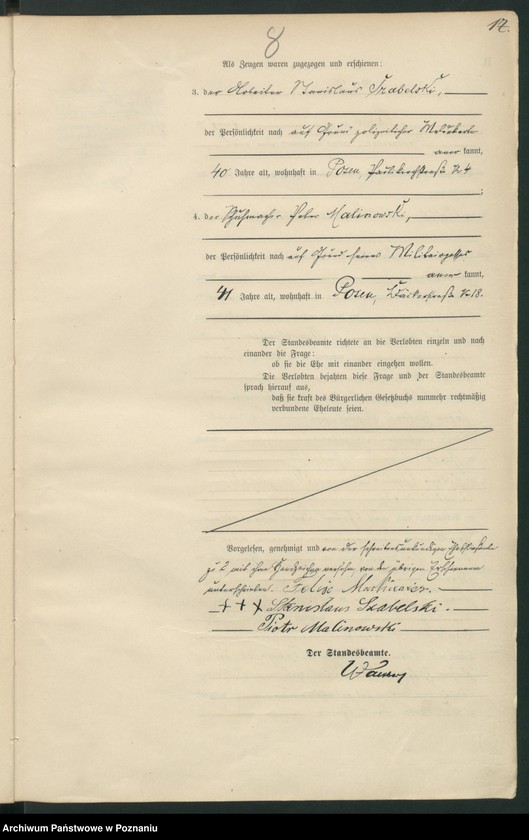 8
14.
Als Zeugen waren zugezogen und erschienen:
3. der Arbeiter Stanislaus Szabelski,
der Persönlichkeit nach auf Grund polizeilicher Meldekarte
aner kannt,
40 Jahre alt, wohnhaft in Posen,
4. der Schuhmacher Peter Malinowski,
der Persönlichkeit nach auf Grund seines Militairpasses
aner kannt,
41 Jahre alt, wohnhaft in Posen, Bäckerstraße № 18.
Der Standesbeamte richtete an die Verlobten einzeln und nach
einander die Frage:
ob sie die Ehe mit einander eingehen wollen.
Die Verlobten bejahten diese Frage und der Standesbeamte
sprach hierauf aus,
daß sie kraft des Bürgerlichen Gesetzbuchs nunmehr rechtmäßig
verbundene Eheleute seien.
Vorgelesen, genehmigt und von der schreibensunkundigen
zu 2 mit ihrem Handzeichen versehen, von den übrigen Erschienenen
unterschrieben. Felix
+++ Stanislaus Szabelski.
Piotr Malinowski
Der Standesbeamte.
Archiwum Państwowe w Poznaniu